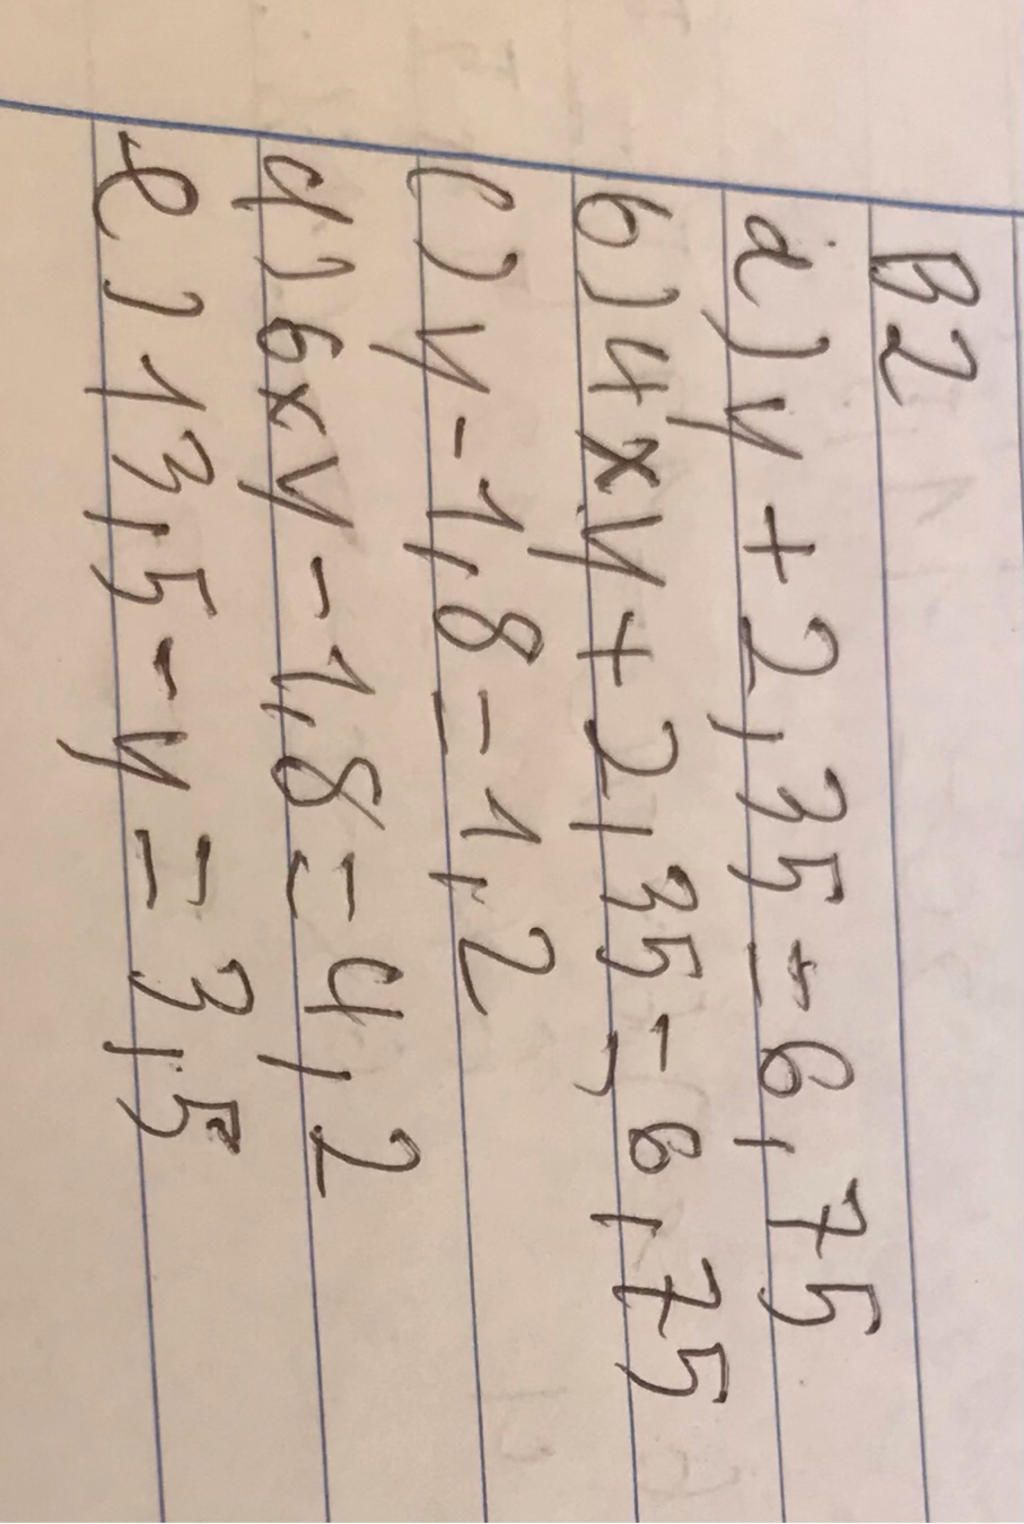 B2
a) y + 2,35 = 6,75
b) 4 x y + 2,35 = 6,75
c) y - 1,8 = 1,2
d) 6 x y - 1,8 = 4,2
e) 13,5 - y = 3,5